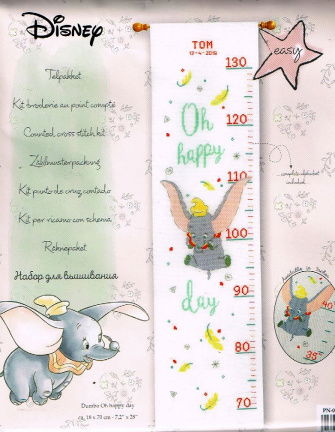 Disney
Telpakket
Kit broderie au point compté
Counted cross stitch kit
Zählmusterpackung
Kit punto de cruz contado
Kit per ricamo con schema
Räknepaket
Набор для вышивания
Dumbo Oh happy day
ca. 18 x 70 cm - 7.2" x 28"
TOM
13-4-2015
130
Oh
120
happy
110
100
day
90
80
70
easy
complete alphabet
included
40
35